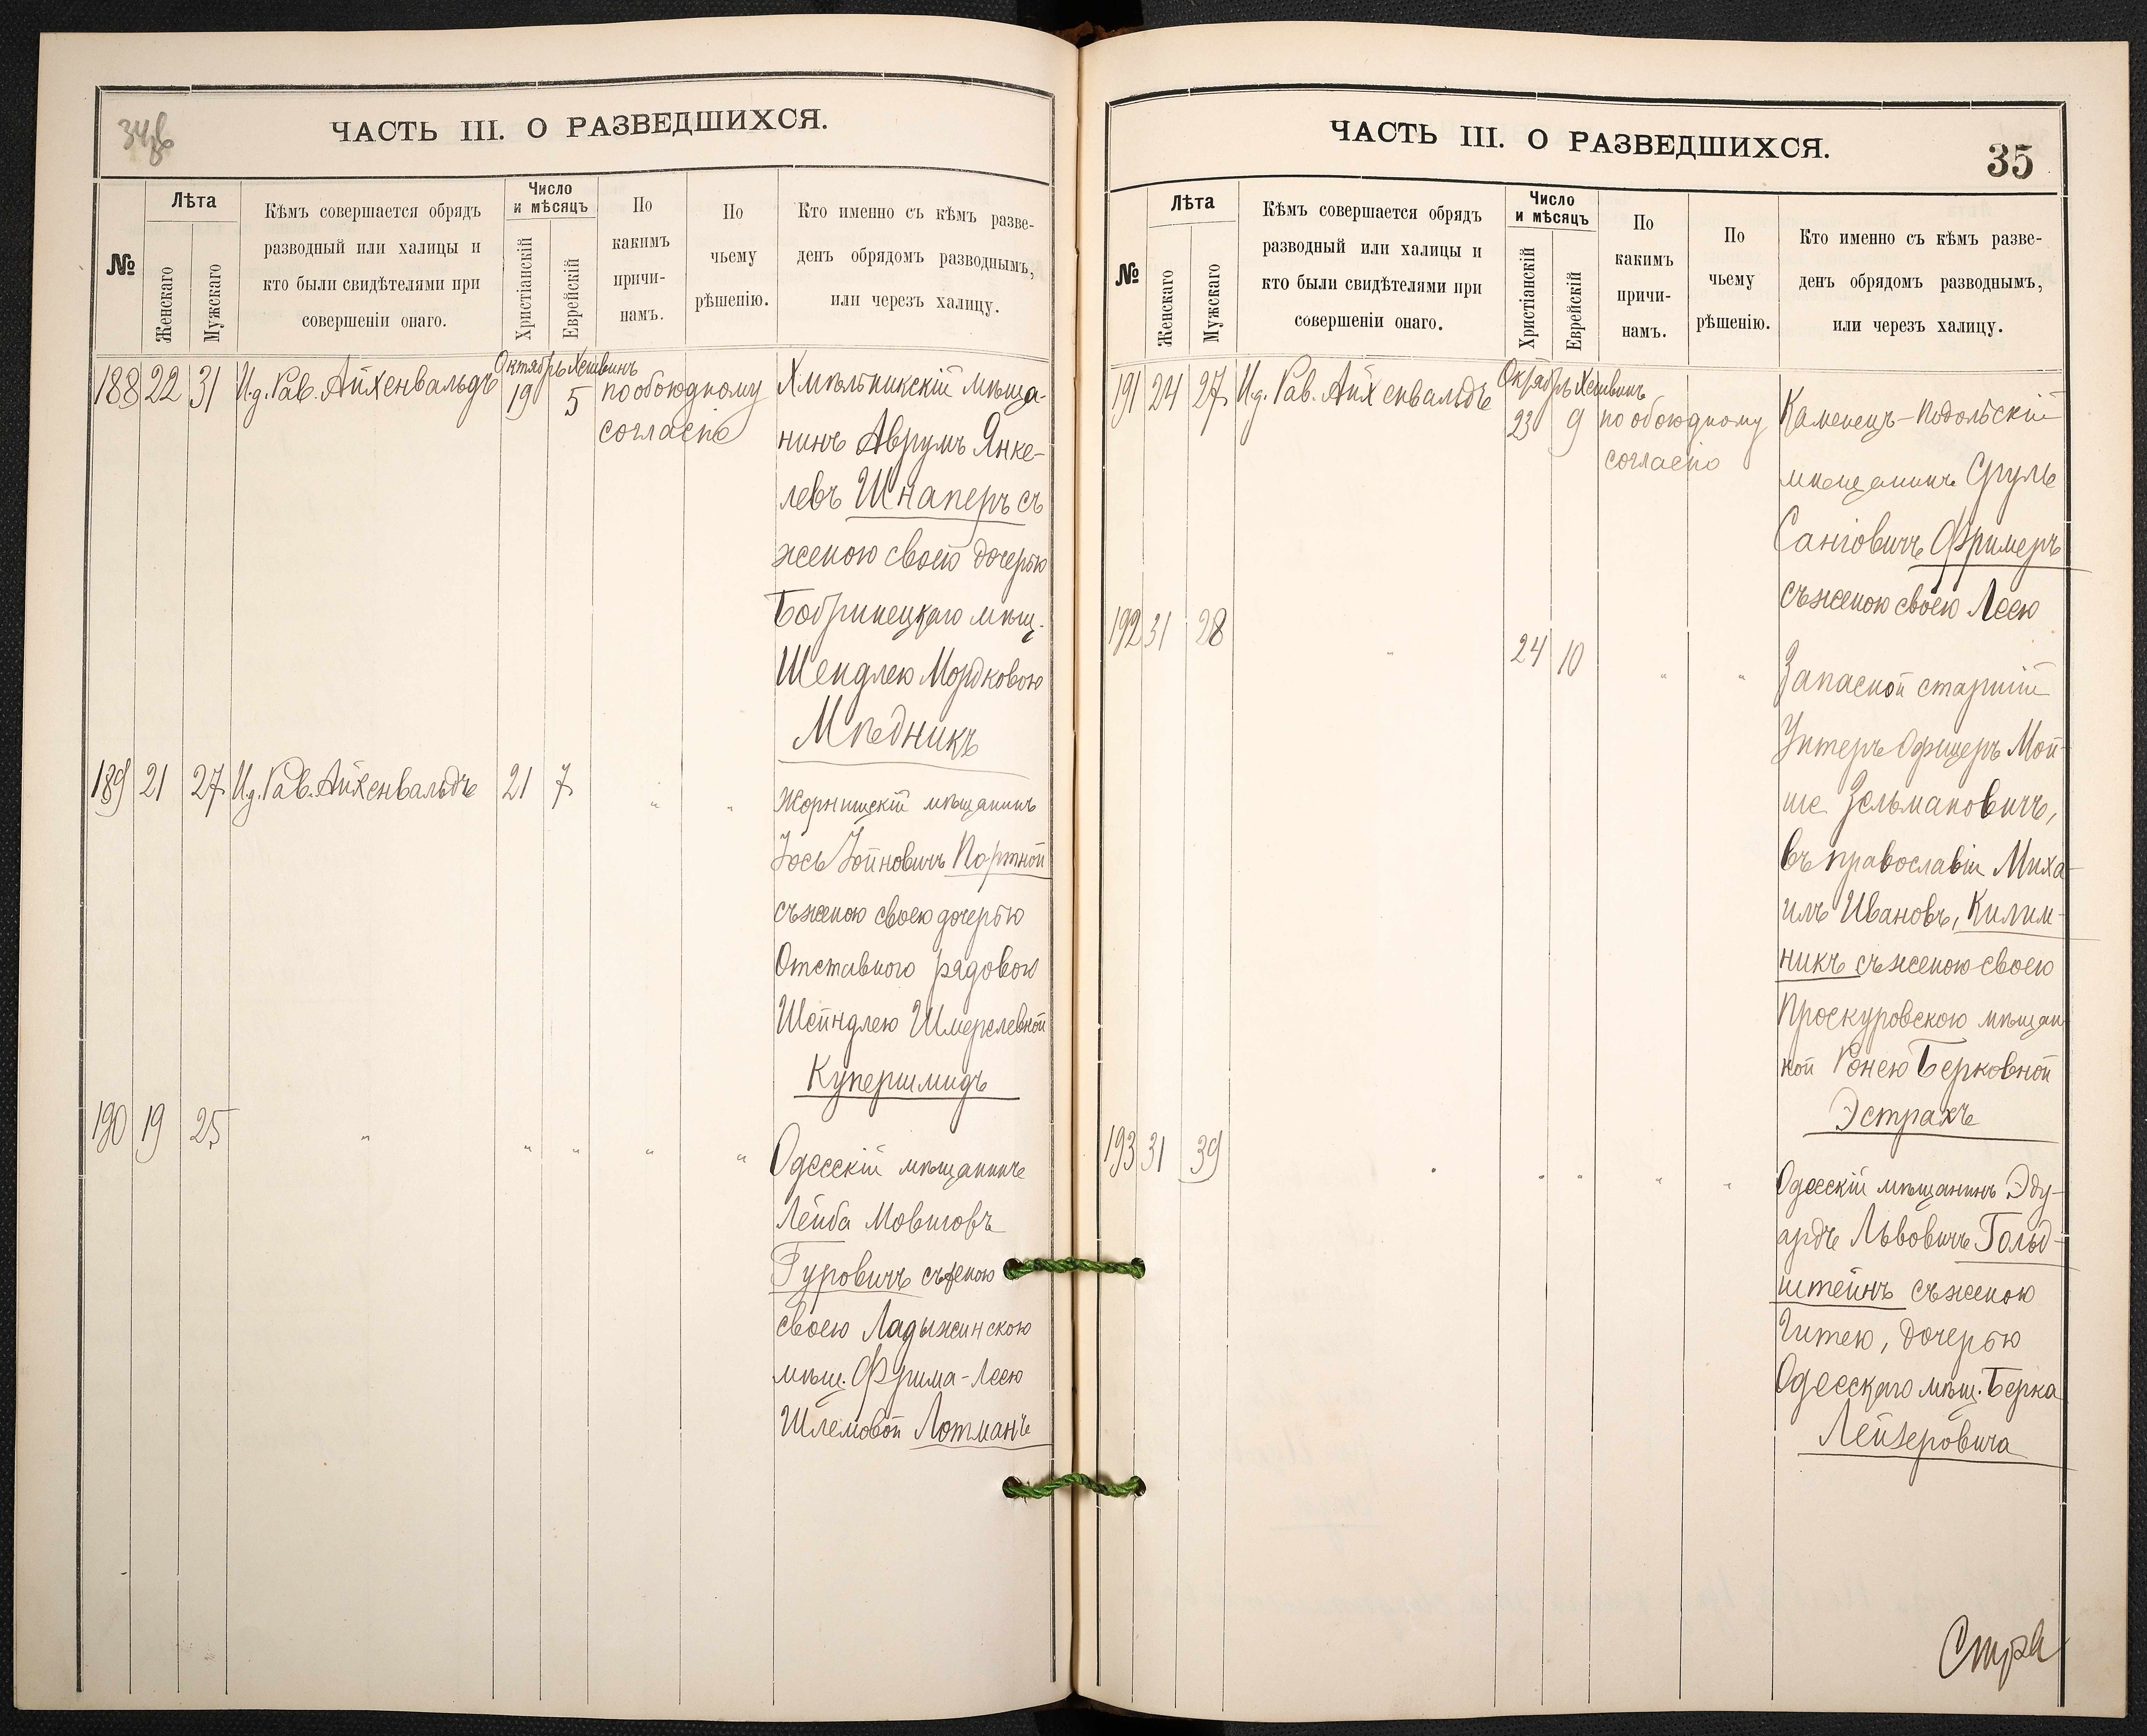 34об
ЧАСТЬ III. О РАЗВЕДШИХСЯ.
№
Лѣта
Женскаго
Мужскаго
Кѣмъ совершается обрядъ
разводный или халицы и
кто были свидѣтелями при
совершеніи онаго.
Число
и мѣсяцъ
Христіанскій
Еврейскій
По
какимъ
причи-
намъ.
По
чьему
рѣшенію.
Кто именно съ кѣмъ разве-
денъ обрядомъ разводнымъ,
или черезъ халицу.
Октябрь Хешвинъ
188 22 31 И.д. Рав. Айхенвальдъ 19 5 по обоюдному
согласію
Хмѣльникскій мѣща-
нинъ Аврумъ Янке-
левъ Шнаперъ съ
женою своею дочерью
Бобринецкаго мѣщ.
Шендлею Мордковою
Мѣдникъ
189 21 27 И.д. Рав. Айхенвальдъ 21 7 " "
Жорнищскій мѣщанинъ
Іось Іойновичъ Портной
съ женою своею дочерью
Отставного рядового
Шейндлею Шмерелевной
Купершмидъ
190 19 25 " " " " "
Одесскій мѣщанинъ
Лейба Мовшовъ
Гуровичъ съ женою
своею Ладыжинскою
мѣщ. Фрима-Леею
Шлемовой Лотманъ
ЧАСТЬ III. О РАЗВЕДШИХСЯ.
35
№
Лѣта
Женскаго
Мужскаго
Кѣмъ совершается обрядъ
разводный или халицы и
кто были свидѣтелями при
совершеніи онаго.
Число
и мѣсяцъ
Христіанскій
Еврейскій
По
какимъ
причи-
намъ.
По
чьему
рѣшенію.
Кто именно съ кѣмъ разве-
денъ обрядомъ разводнымъ,
или черезъ халицу.
Октябрь Хешвинъ
191 24 27 И.д. Рав. Айхенвальдъ 23 9 по обоюдному
согласію
Каменецъ-Подольскій
мѣщанинъ Сруль
Санговичъ Фримеръ
съ женою своею Леею
192 31 28 " 24 10 " "
Запасной старшій
Унтеръ Офицеръ Мой-
ше Зельмановичъ,
въ православіи Миха-
илъ Ивановъ, Килим-
никъ съ женою своею
Проскуровскою мѣщан-
кой Ронею Берковной
Эстрахъ
193 31 39 " " " " "
Одесскій мѣщанинъ Эду-
ардъ Львовичъ Гольд-
штейнъ съ женою
Гитею, дочерью
Одесскаго мѣщ. Берка
Лейзеровича